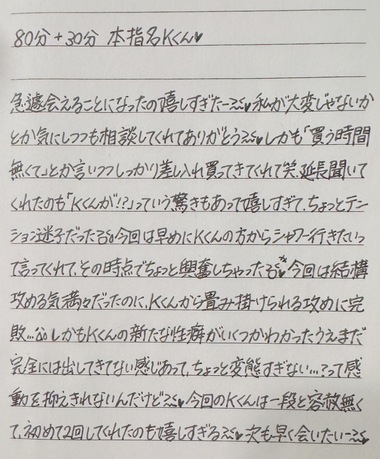 80分+30分 本指名Kくん♥
急遽会えることになったの嬉しすぎたー♥私が大変じゃないか
とか気にしつつも相談してくれてありがとう♥しかも「買う時間
無くて」とか言いつつしっかり差し入れ買ってきてくれて笑、延長聞いて
くれたのも「Kくんが!?」っていう驚きもあって嬉しすぎて、ちょっとテン
ション迷子だった 今回は早めにKくんの方からシャワー行きたいっ
て言ってくれて、その時点でちょっと興奮しちゃった 今回は結構
攻める気満々だったのに、Kくんから畳み掛けられる攻めに完
敗... しかもKくんの新たな性癖がいくつかわかったうえまだ
完全には出してきてない感じあって、ちょっと変態すぎない...?って感
動を抑えきれないんだけど♥今回のKくんは一段と容赦無く
て、初めて2回してくれたのも嬉しすぎる♥次も早く会いたいー♥